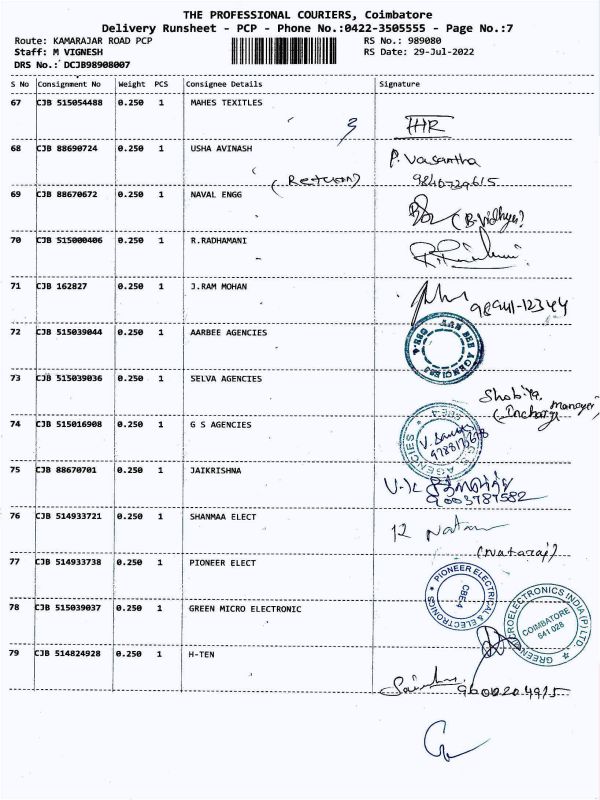 THE PROFESSIONAL COURIERS, Coimbatore
Delivery Runsheet - PCP - Phone No.:0422-3505555 - Page No.:7
Route: KAMARAJAR ROAD PCP RS No.: 989080
Staff: M VIGNESH RS Date: 29-Jul-2022
DRS No.: DCJB98908007
S No Consignment No Weight PCS Consignee Details Signature
67 CJB 515054488 0.250 1 MAHES TEXITLES
3
68 CJB 88690724 0.250 1 USHA AVINASH P. Vasantha
(Return) 9840729615
69 CJB 88670672 0.250 1 NAVAL ENGG
(B.Vidhya)
70 CJB 515000406 0.250 1 R.RADHAMANI
71 CJB 162827 0.250 1 J.RAM MOHAN
98941-12344
72 CJB 515039044 0.250 1 AARBEE AGENCIES
AAR BEE AGENCIES
73 CJB 515039036 0.250 1 SELVA AGENCIES
(Incharge Manager)
74 CJB 515016908 0.250 1 G S AGENCIES
G.S. AGENCIES
75 CJB 88670701 0.250 1 JAIKRISHNA
9003787582
76 CJB 514933721 0.250 1 SHANMAA ELECT
(Nataraj)
77 CJB 514933738 0.250 1 PIONEER ELECT
PIONEER ELECTRICAL & ELECTRONICS
CBE-4
78 CJB 515039037 0.250 1 GREEN MICRO ELECTRONIC
GREEN MICROELECTRONICS INDIA (P) LTD.
COIMBATORE
641 028
79 CJB 514824928 0.250 1 H-TEN
9600204915